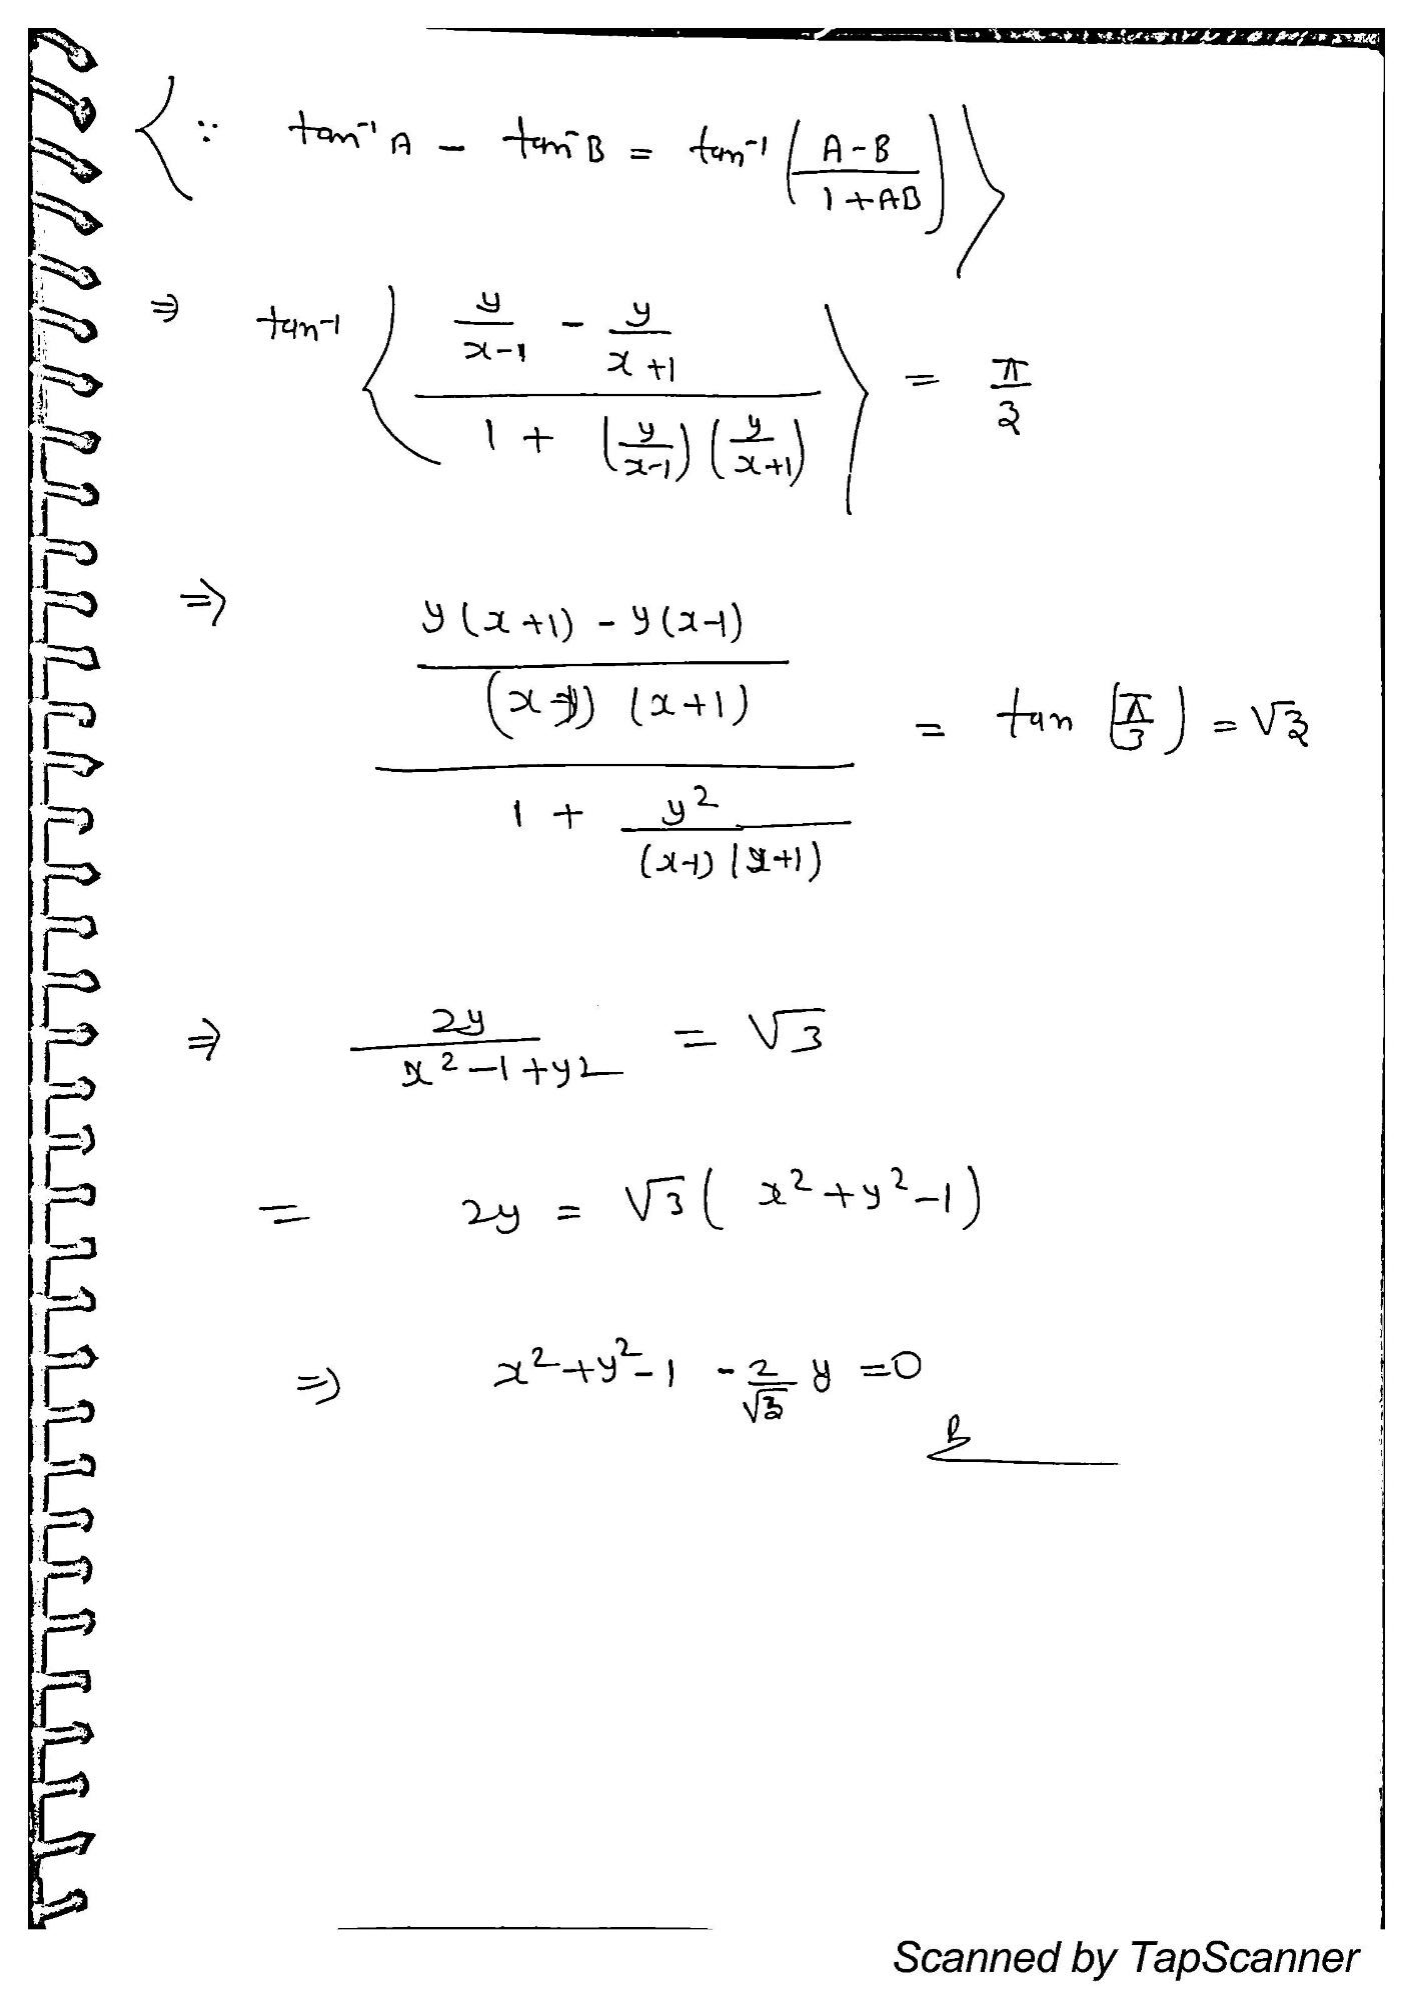 ∵ tan⁻¹ A - tan⁻ B = tan⁻¹ ((A-B)/(1+AB))
⇒ tan⁻¹ ((y/(x-1) - y/(x+1))/(1 + (y/(x-1)) (y/(x+1)))) = π/3
⇒ ((y(x+1) - y(x-1))/((x-1)(x+1)))/(1 + y²/((x-1)(x+1))) = tan (π/3) = √3
⇒ 2y/(x²-1+y²) = √3
= 2y = √3( x²+y²-1)
⇒ x²+y²-1 - 2/√3 y = 0
Scanned by TapScanner